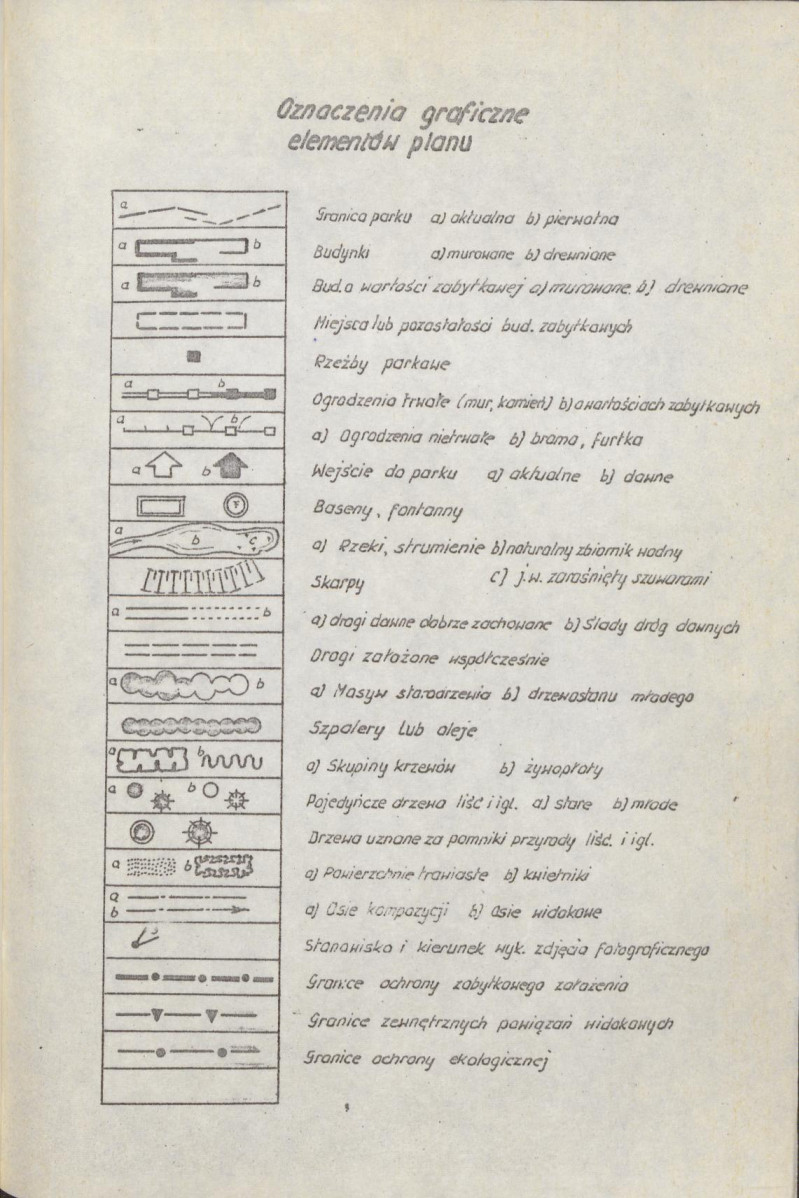 Oznaczenia graficzne
elementów planu
a Granica parku a) aktualna b) pierwotna
a b Budynki a) murowane b) drewniane
a b Bud. o wartości zabytkowej a) murowane. b) drewniane
Miejsca lub pozostałości bud. zabytkowych
Rzeźby parkowe
a b Ogrodzenia trwałe (mur, kamień) b) o wartościach zabytkowych
a b a) Ogrodzenia nietrwałe b) brama, furtka
a b Wejście do parku a) aktualne b) dawne
F Baseny, fontanny
a b c a) Rzeki, strumienie b) naturalny zbiornik wodny
Skarpy c) j.w. zarośnięty szuwarami
a b a) drogi dawne dobrze zachowane b) Ślady dróg dawnych
Drogi założone współcześnie
a b a) Masyw starodrzewia b) drzewostanu młodego
Szpalery lub aleje
a b a) Skupiny krzewów b) żywopłoty
a b Pojedyńcze drzewa liść i igl. a) stare b) młode
Drzewa uznane za pomniki przyrody liść. i igl.
a b a) Powierzchnie trawiaste b) kwietniki
a b a) Osie kompozycji b) Osie widokowe
Stanowiska i kierunek wyk. zdjęcia fotograficznego
Granice ochrony zabytkowego założenia
Granice zewnętrznych powiązań widokowych
Granice ochrony ekologicznej